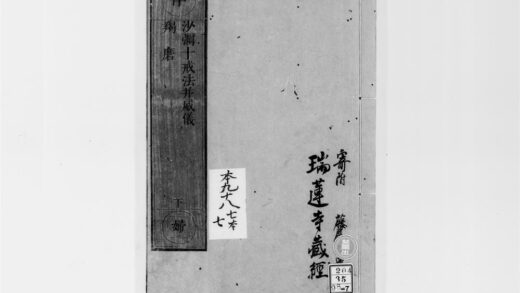 沙彌十戒法并威儀
羯磨
下
婦
本九十八
七本
七
寄附
瑞蓮寺藏經
204
35